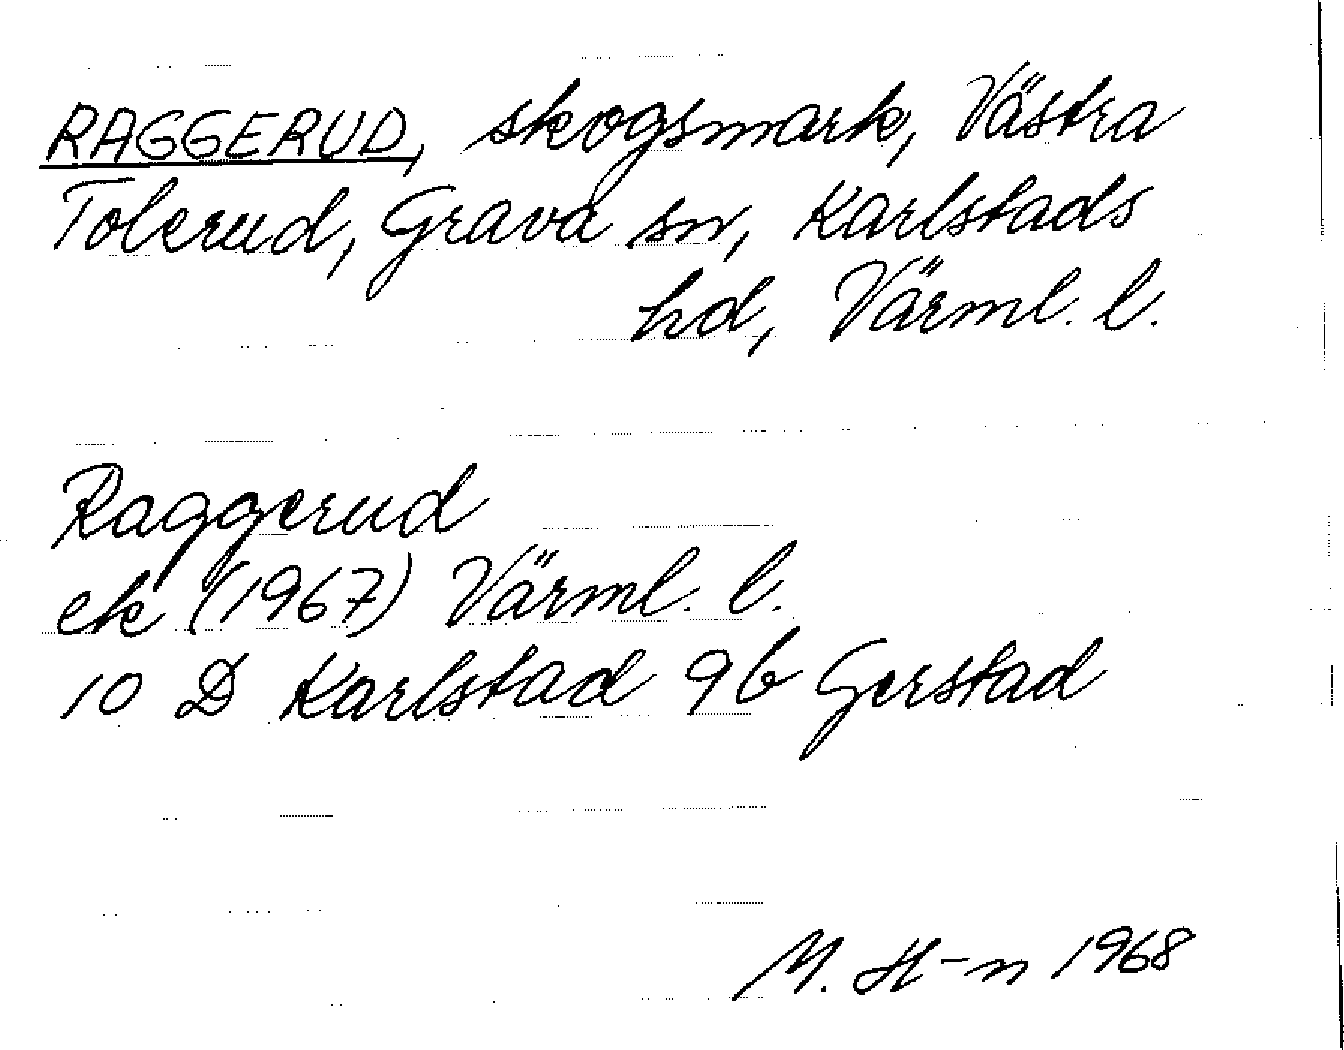 RAGGERUD, skogsmark, Västra
Tolerud, Grava sn, Karlstads
hd, Värml. l.
Raggerud
ek (1967) Värml. l.
10 D Karlstad 9b Gerstad
M. H-n 1968